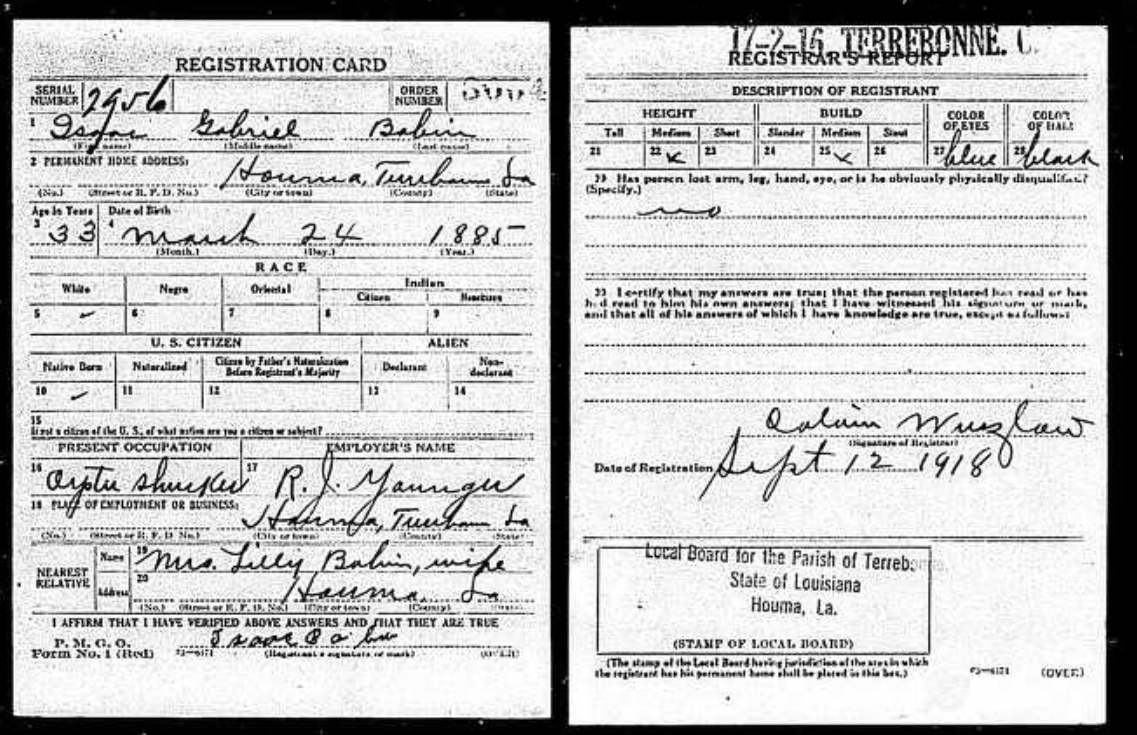 REGISTRATION CARD
SERIAL NUMBER 2956
ORDER NUMBER
1 Isaac Gabriel Babin
(First name) (Middle name) (Last name)
2 PERMANENT HOME ADDRESS:
Houma, Terrebonne La
(No.) (Street or R. F. D. No.) (City or town) (County) (State)
Age in Years Date of Birth
3 33 4 March 24 1885
(Month.) (Day.) (Year.)
RACE
White Negro Oriental Indian
Citizen Noncitizen
5 ✓ 6 7 8 9
U. S. CITIZEN ALIEN
Native Born Naturalized Citizen by Father's Naturalization Before Registrant's Majority Declarant Non-declarant
10 ✓ 11 12 13 14
15
If not a citizen of the U. S., of what nation are you a citizen or subject?
PRESENT OCCUPATION EMPLOYER'S NAME
16 Oyster shucker 17 R. J. Younger
18 PLACE OF EMPLOYMENT OR BUSINESS:
Houma, Terrebonne La
(No.) (Street or R. F. D. No.) (City or town) (County) (State)
NEAREST RELATIVE
Name 19 Mrs. Lilly Babin, wife
Address 20 Houma, La
(No.) (Street or R. F. D. No.) (City or town) (County) (State)
I AFFIRM THAT I HAVE VERIFIED ABOVE ANSWERS AND THAT THEY ARE TRUE
P. M. G. O.
Form No. 1 (Red) Isaac Babin
(Registrant's signature or mark) (OVER)
17-2-16 TERREBONNE. C.
REGISTRAR'S REPORT
DESCRIPTION OF REGISTRANT
HEIGHT BUILD COLOR OF EYES COLOR OF HAIR
Tall Medium Short Slender Medium Stout
21 22 ✓ 23 24 25 ✓ 26 27 blue 28 black
29 Has person lost arm, leg, hand, eye, or is he obviously physically disqualified?
(Specify.)
no
30 I certify that my answers are true; that the person registered has read or has
had read to him his own answers; that I have witnessed his signature or mark,
and that all of his answers of which I have knowledge are true, except as follows:
Calvin Wurzlow
(Signature of Registrar)
Date of Registration Sept 12 1918
Local Board for the Parish of Terrebonne
State of Louisiana
Houma, La.
(STAMP OF LOCAL BOARD)
(The stamp of the Local Board having jurisdiction of the area in which
the registrant has his permanent home shall be placed in this box.)
03—6171 (OVER)